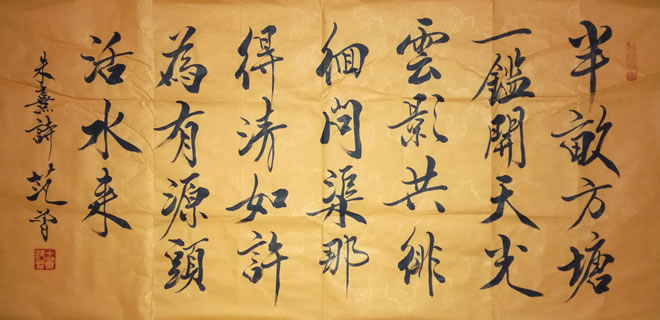 半畝方塘
一鑑開天光
雲影共徘
徊問渠那
得清如許
為有源頭
活水来
朱熹詩 范曾